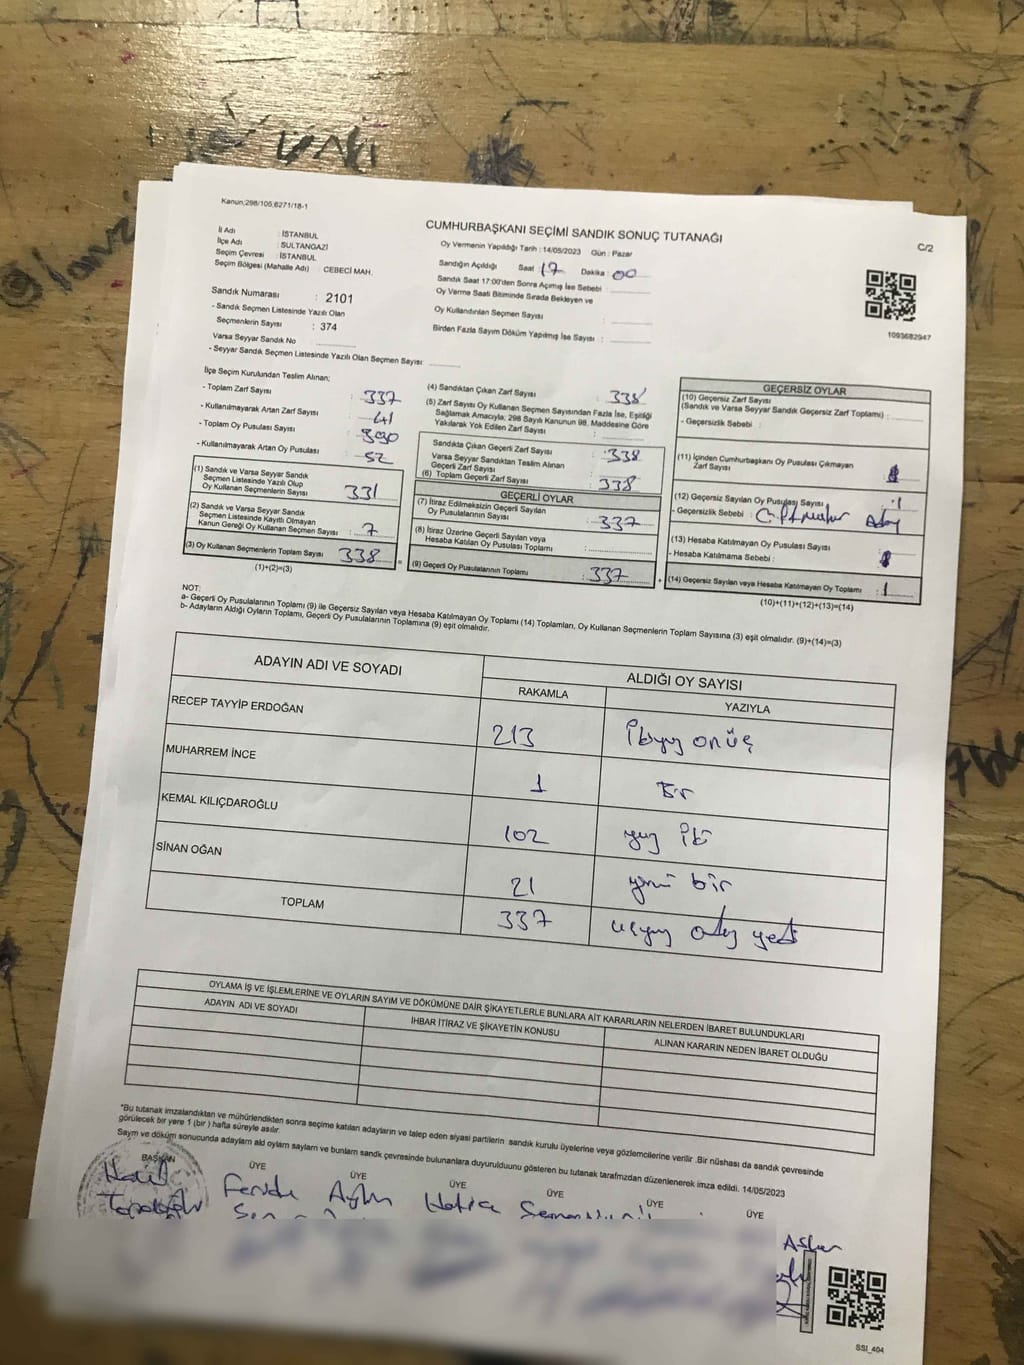 Kanun;298/105,6271/18-1
CUMHURBAŞKANI SEÇİMİ SANDIK SONUÇ TUTANAĞI
C/2
İl Adı : İSTANBUL
İlçe Adı : SULTANGAZİ
Seçim Çevresi : İSTANBUL
Seçim Bölgesi (Mahalle Adı) CEBECİ MAH.
Oy Vermenin Yapıldığı Tarih : 14/05/2023 Gün : Pazar
Sandığın Açıldığı Saat 17 Dakika : 00
Sandık Saat 17:00'den Sonra Açımış İse Sebebi :
Oy Verme Saati Bitiminde Sırada Bekleyen ve
Oy Kullandırılan Seçmen Sayısı :
Birden Fazla Sayım Döküm Yapılmış İse Sayısı :
1093682947
Sandık Numarası : 2101
- Sandık Seçmen Listesinde Yazılı Olan
Seçmenlerin Sayısı : 374
Varsa Seyyar Sandık No
- Seyyar Sandık Listesinde Yazılı Olan Seçmen Sayısı:
İlçe Seçim Kurulundan Teslim Alınan;
- Toplam Zarf Sayısı : 337
- Kullanılmayarak Artan Zarf Sayısı : 41
- Toplam Oy Pusulası Sayısı : 390
- Kullanılmayarak Artan Oy Pusulası : 52
(1) Sandık ve Varsa Seyyar Sandık
Seçmen Listesinde Yazılı Olup
Oy Kullanan Seçmenlerin Sayısı : 331
(2) Sandık ve Varsa Seyyar Sandık
Seçmen Listesinde Kayıtlı Olmayan
Kanun Gereği Oy Kullanan Seçmen Sayısı : 7
(3) Oy Kullanan Seçmenlerin Toplam Sayısı : 338
(1)+(2)=(3)
(4) Sandıktan Çıkan Zarf Sayısı : 338
(5) Zarf Sayısı Oy Kullanan Seçmen Sayısından Fazla İse, Eşitliği
Sağlamak Amacıyla; 298 Sayılı Kanunun 98. Maddesine Göre
Yakılarak Yok Edilen Zarf Sayısı :
Sandıkta Çıkan Geçerli Zarf Sayısı : 338
Varsa Seyyar Sandıktan Teslim Alınan
Geçerli Zarf Sayısı
(6) Toplam Geçerli Zarf Sayısı : 338
GEÇERLİ OYLAR
(7) İtiraz Edilmeksizin Geçerli Sayılan
Oy Pusulalarının Sayısı : 337
(8) İtiraz Üzerine Geçerli Sayılan veya
Hesaba Katılan Oy Pusulası Toplamı :
(9) Geçerli Oy Pusulalarının Toplamı : 337
GEÇERSİZ OYLAR
(10) Geçersiz Zarf Sayısı
(Sandık ve Varsa Seyyar Sandık Geçersiz Zarf Toplamı) :
- Geçersizlik Sebebi :
(11) İçinden Cumhurbaşkanı Oy Pusulası Çıkmayan
Zarf Sayısı
(12) Geçersiz Sayılan Oy Pusulası Sayısı : 1
- Geçersizlik Sebebi :
(13) Hesaba Katılmayan Oy Pusulası Sayısı
- Hesaba Katılmama Sebebi :
(14) Geçersiz Sayılan veya Hesaba Katılmayan Oy Toplamı : 1
(10)+(11)+(12)+(13)=(14)
NOT:
a- Geçerli Oy Pusulalarının Toplamı (9) ile Geçersiz Sayılan veya Hesaba Katılmayan Oy Toplamı (14) Toplamları, Oy Kullanan Seçmenlerin Toplam Sayısına (3) eşit olmalıdır. (9)+(14)=(3)
b- Adayların Aldığı Oyların Toplamı, Geçerli Oy Pusulalarının Toplamına (9) eşit olmalıdır.
ADAYIN ADI VE SOYADI ALDIĞI OY SAYISI
RAKAMLA YAZIYLA
RECEP TAYYİP ERDOĞAN 213 İkiyüz onüç
MUHARREM İNCE 1 Bir
KEMAL KILIÇDAROĞLU 102 yüz iki
SİNAN OĞAN 21 yirmi bir
TOPLAM 337 üçyüz otuz yedi
OYLAMA İŞ VE İŞLEMLERİNE VE OYLARIN SAYIM VE DÖKÜMÜNE DAİR ŞİKAYETLERLE BUNLARA AİT KARARLARIN NELERDEN İBARET BULUNDUKLARI
ADAYIN ADI VE SOYADI İHBAR İTİRAZ VE ŞİKAYETİN KONUSU ALINAN KARARIN NEDEN İBARET OLDUĞU
*Bu tutanak imzalandıktan ve mühürlendikten sonra seçime katılan adayların ve talep eden siyasi partilerin sandık kurulu üyelerine veya gözlemcilerine verilir .Bir nüshası da sandık çevresinde
görülecek bir yere 1 (bir ) hafta süreyle asılır.
Sayım ve döküm sonucunda adayların aldı oyların sayları ve bunların sandk çevresinde bulunanlara duyurulduunu gösteren bu tutanak tarafımzdan düzenlenerek imza edildi. 14/05/2023
BAŞKAN ÜYE ÜYE ÜYE ÜYE ÜYE ÜYE
Halil Feride Aylın Hatice
SSI_404